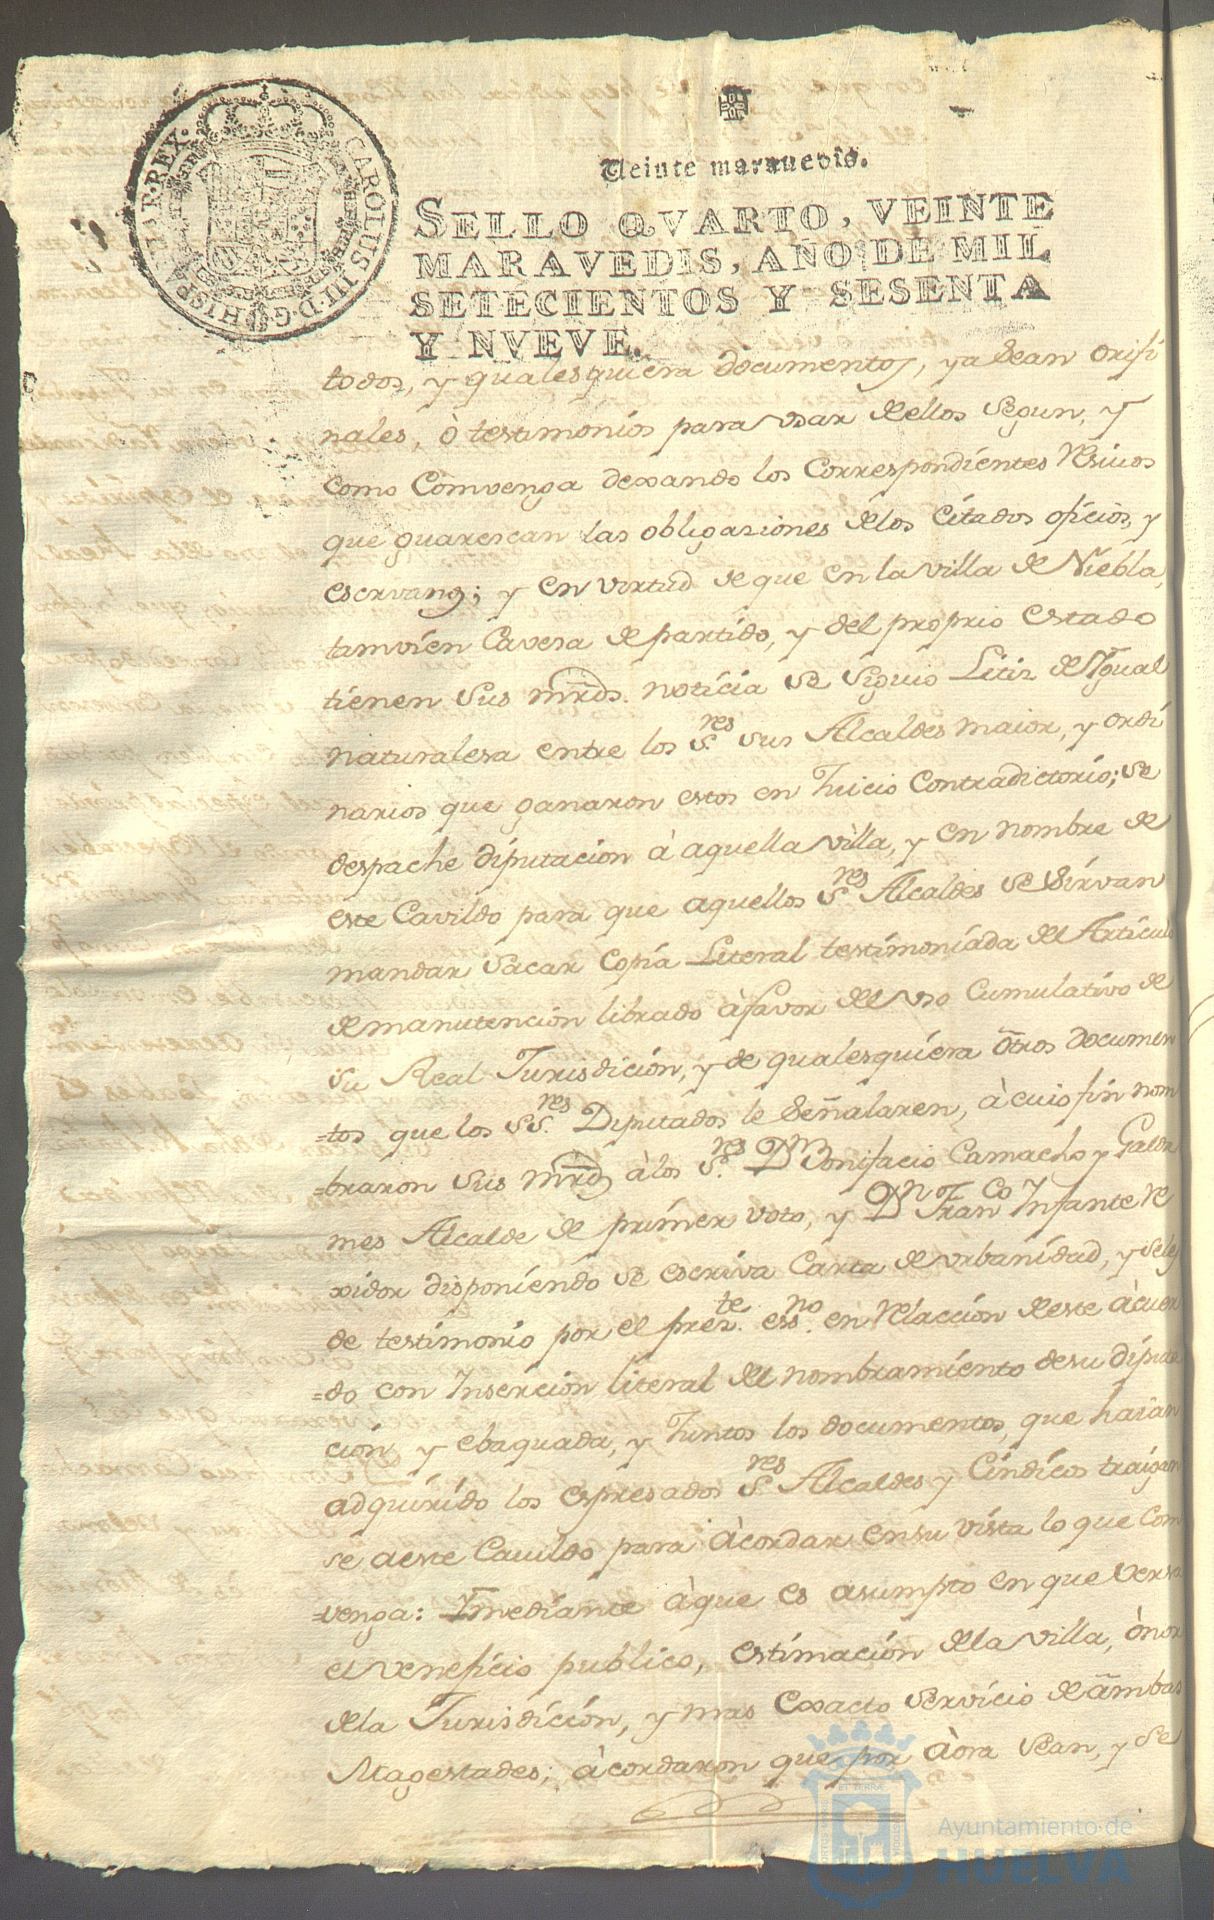 CAROLUS III D.G. HISPANIAR. REX.
Veinte marauedis.
SELLO QVARTO, VEINTE
MARAVEDIS, AÑO DE MIL
SETECIENTOS Y SESENTA
Y NVEVE.
todos, y qualesquiera documentos, ya Sean orifi
nales, ò testimonios para vsar dellos Segun, y
como Comvenga dexando los Correspondientes Resiuos
que guarescan las obligaziones delos Citados oficios, y
escrvanos; y en virtud de que en la villa de Niebla,
tamvien Cavesa de partido, y del proprio estado
tienen Sus mrds. noticia se Siguio Litiz de Ygual
naturalesa entre los S.res Sus Alcaldes maior, y ordi
narios que ganaron estos en Juicio Contradictorio; se
despache diputacion à aquella villa, y en nombre de
este Cavildo para que aquellos S.res Alcaldes se Sirvan
mandar Sacar Copia Literal testimoniada del Articulo
de manutencion librado à favor del vso Cumulativo de
su Real Jurisdicion, y de qualesquiera otros documen
=tos que los SS.res Diputados le Señalaren, à cuio fin nom
=braron Sus mrds à los S.res Dn Bonifacio Camacho y Galdr
mes Alcalde de primer voto, y Dn Franco Infante Re
xidor disponiendo se escriva Carta de vrbanidad, y sele
de testimonio por el preste. essno. en Relacion deste àcuer
=do con Insercion literal del nombramiento desu diputa
cion y ebaquada, y Juntos los documentos, que haian
adquirido los espresados S.res Alcaldes y Cindicos traigan
se aeste Cauildo para àcordar ensu vista lo que Com
=venga: Ymediante àque es asumpto en que versa
el veneficio publico, estimacion dela villa, ònor
dela Jurisdiccion, y mas Exacto Servicio de ambas
Magestades; àcordaron que por àora sean, y se
Ayuntamiento de
HUELVA